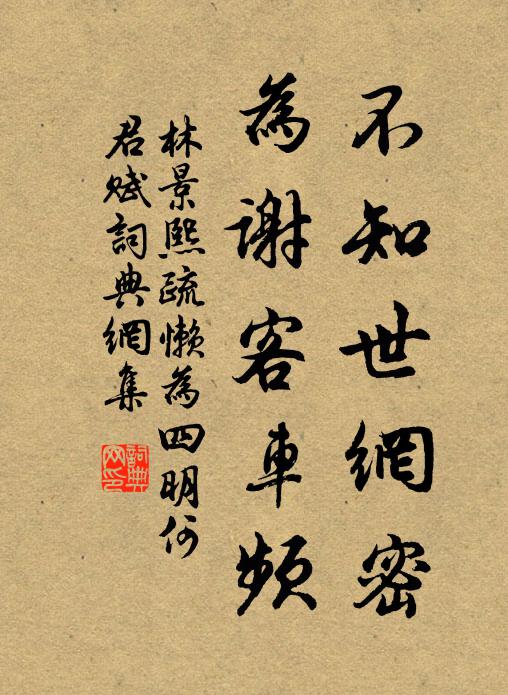 不知世網密
為謝客車頻
林景熙疏懶為四明何
君賦詞典網集
詞典网印